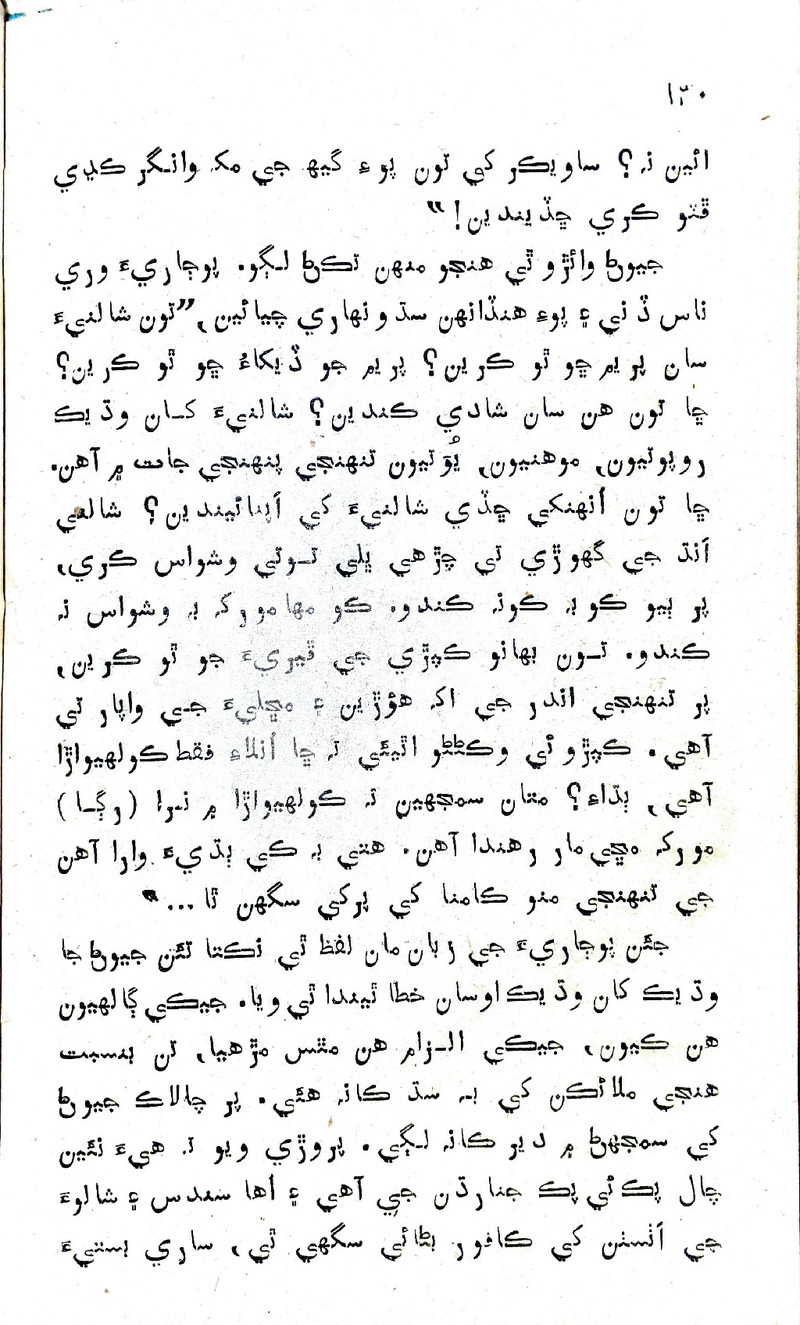 ١٣٠
ائين نہ؟ ساويڪر کي تون پوءِ گيھ جي مک وانگر ڪڍي
ڦٽو ڪري ڇڏيندين!"
جيوڻ وائڙو ٿي هنجو منهن تڪڻ لڳو. پوڄاريءَ وري
ناس ڏني ۽ پوءِ هنڌانهن سڌو نهاري چيائين، "تون شالنيءَ
سان پريم ڇو ٿو ڪرين؟ پريم جو ڏيکاءُ ڇو ٿو ڪرين؟
ڇا تون هن سان شادي ڪندين؟ شالنيءَ کان وڌيڪ
روپوتيون، موهنيون، يُوَتيون تنهنجي پنهنجي جات ۾ آهن.
ڇا تون اُنهنکي ڇڏي شالنيءَ کي اَپنائيندين؟ شالني
اَنڌ جي گهوڙي تي چڙهي ڀلي توتي وشواس ڪري،
پر ٻيو ڪو بہ ڪونہ ڪندو. ڪو مهامورک بہ وشواس نہ
ڪندو. تون بهانو ڪپڙي جي ڦيريءَ جو ٿو ڪرين،
پر تنهنجي اندر جي اک هؤڙين ۽ مڇليءَ جي واپار تي
آهي. ڪپڙو ئي وڪڻڻو اٿيئي تہ ڇا اُنلاءِ فقط ڪولهيواڙا
آهي، ٻڌاءِ؟ متان سمجهين تہ ڪولهيواڙا ۾ نرا (رڳا)
مورک مڇي مار رهندا آهن. هتي بہ ڪي ٻڌيءَ وارا آهن
جي تنهنجي منو ڪامنا کي پرکي سگهن ٿا..."
جئن پوڄاريءَ جي زبان مان لفظ ٿي نڪتا تئن جيوڻ جا
وڌيڪ کان وڌيڪ اوسان خطا ٿيندا ٿي ويا. جيڪي ڳالهيون
هن ڪيون، جيڪي الزام هن مٿس مڙهيا، تن بنسبت
هنجي ملائڪن کي بہ سڌ ڪانہ هئي. پر چالاڪ جيوڻ
کي سمجهڻ ۾ دير ڪانہ لڳي. پروڙي ويو تہ هيءَ نئين
چال پڪ ئي پڪ جنارڌن جي آهي ۽ اُها سندس ۽ شالوءَ
جي اُنسُن کي ڪافور بڻائي سگهي ٿي، ساري بستيءَ